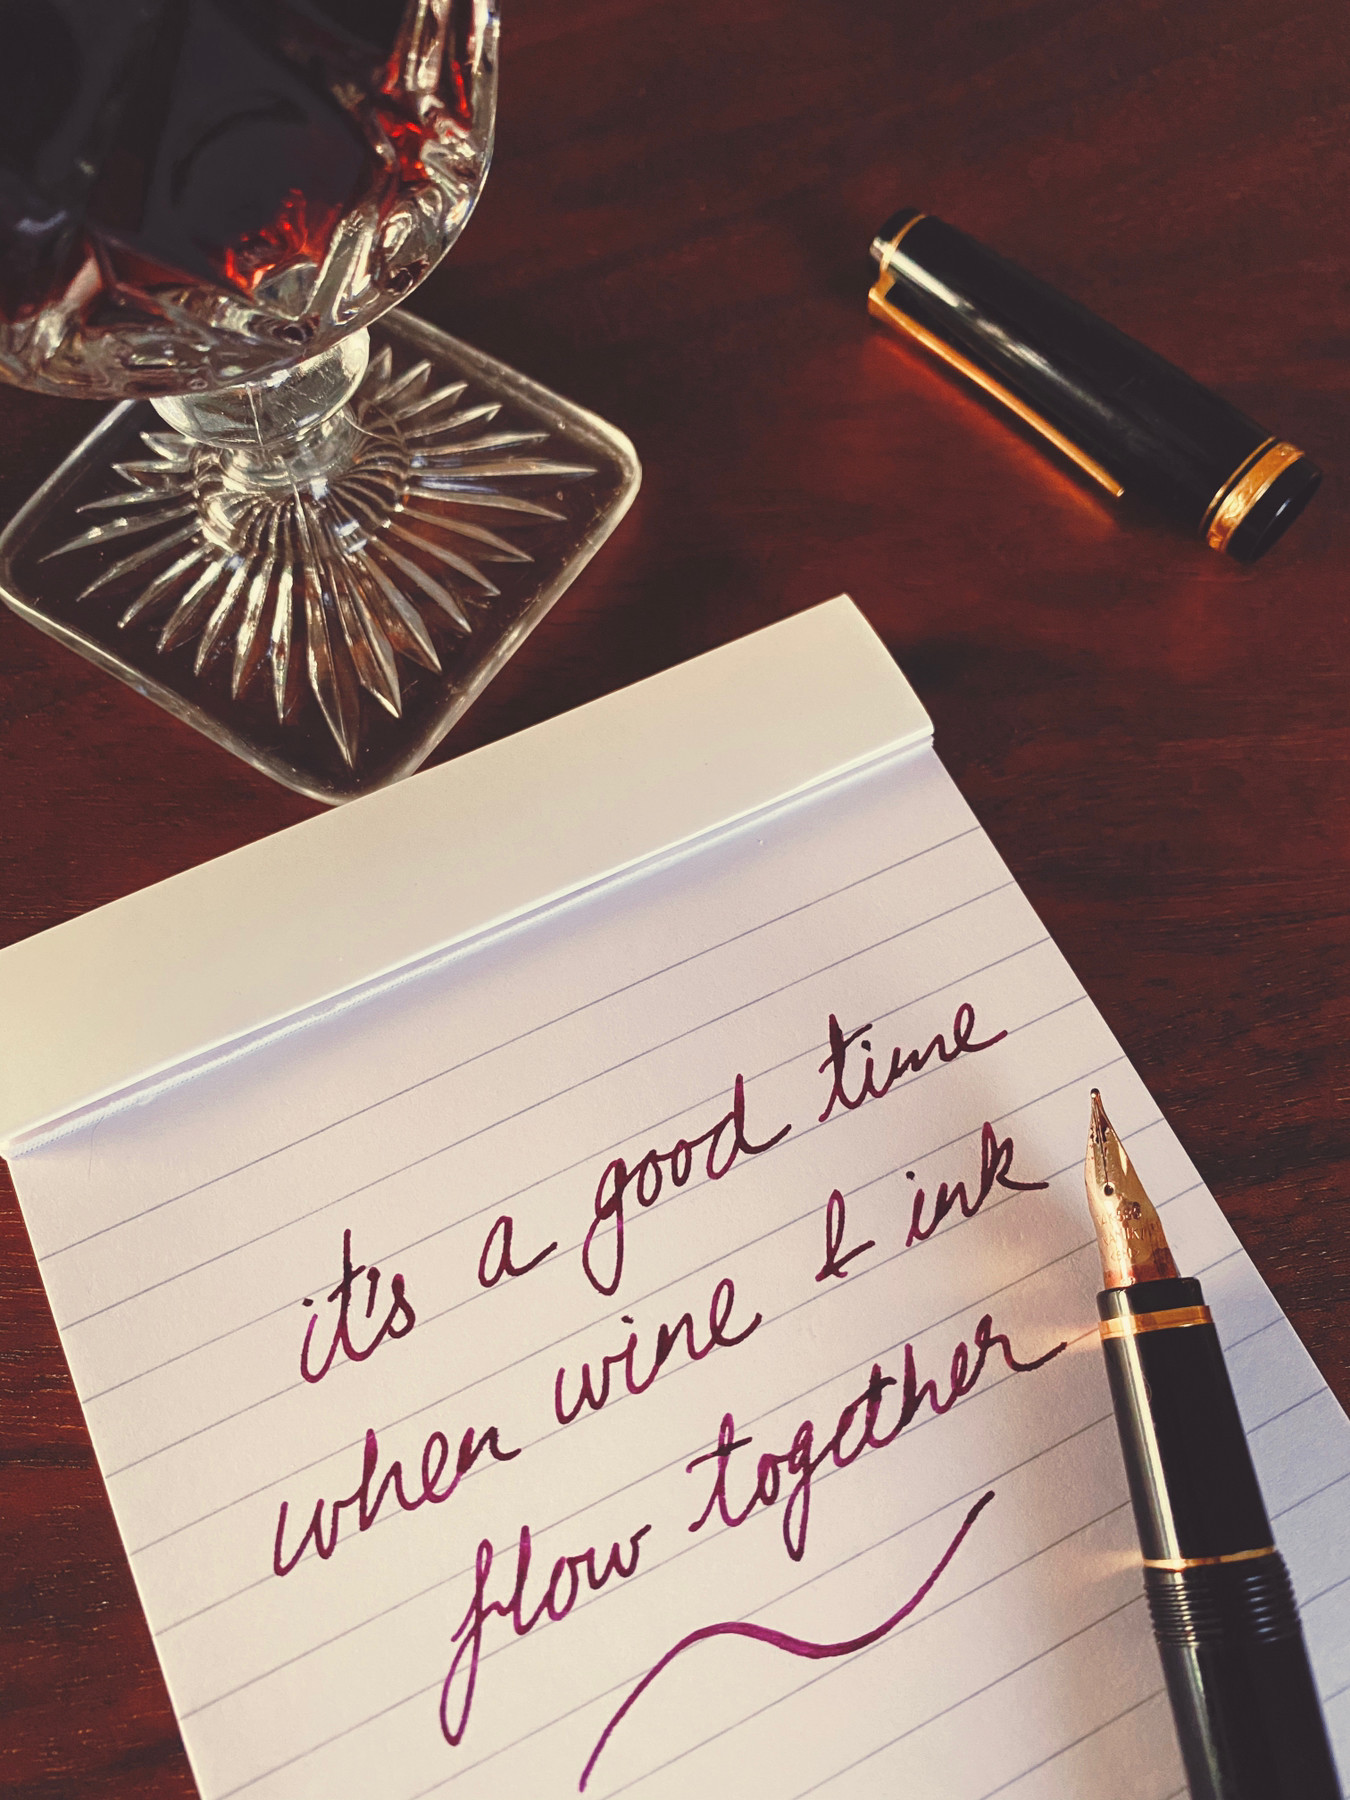 it's a good time
when wine & ink
flow together